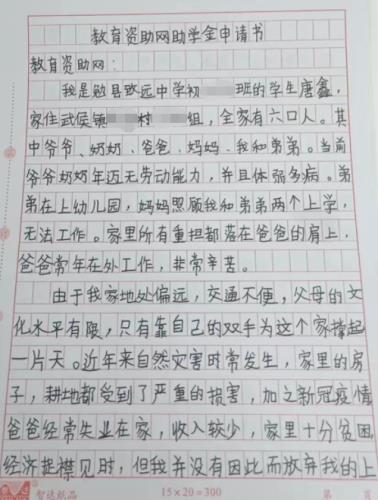 教育资助网助学金申请书
教育资助网：
我是勉县致远中学初 班的学生唐鑫，
家住武侯镇 村 组，全家有六口人。其
中爷爷、奶奶、爸爸、妈妈、我和弟弟。当前
爷爷奶奶年迈无劳动能力，并且体弱多病。弟
弟在上幼儿园，妈妈照顾我和弟弟两个上学，
无法工作。家里所有重担都落在爸爸的肩上，
爸爸常年在外工作，非常辛苦。
由于我家地处偏远，交通不便，父母的文
化水平有限，只有靠自己的双手为这个家撑起
一片天。近年来自然灾害时常发生，家里的房
子，耕地都受到了严重的损害，加之新冠疫情
爸爸经常失业在家，收入较少，家里十分贫困，
经济捉襟见时，但我并没有因此而放弃我的上
智达纸品 15×20=300 第 页